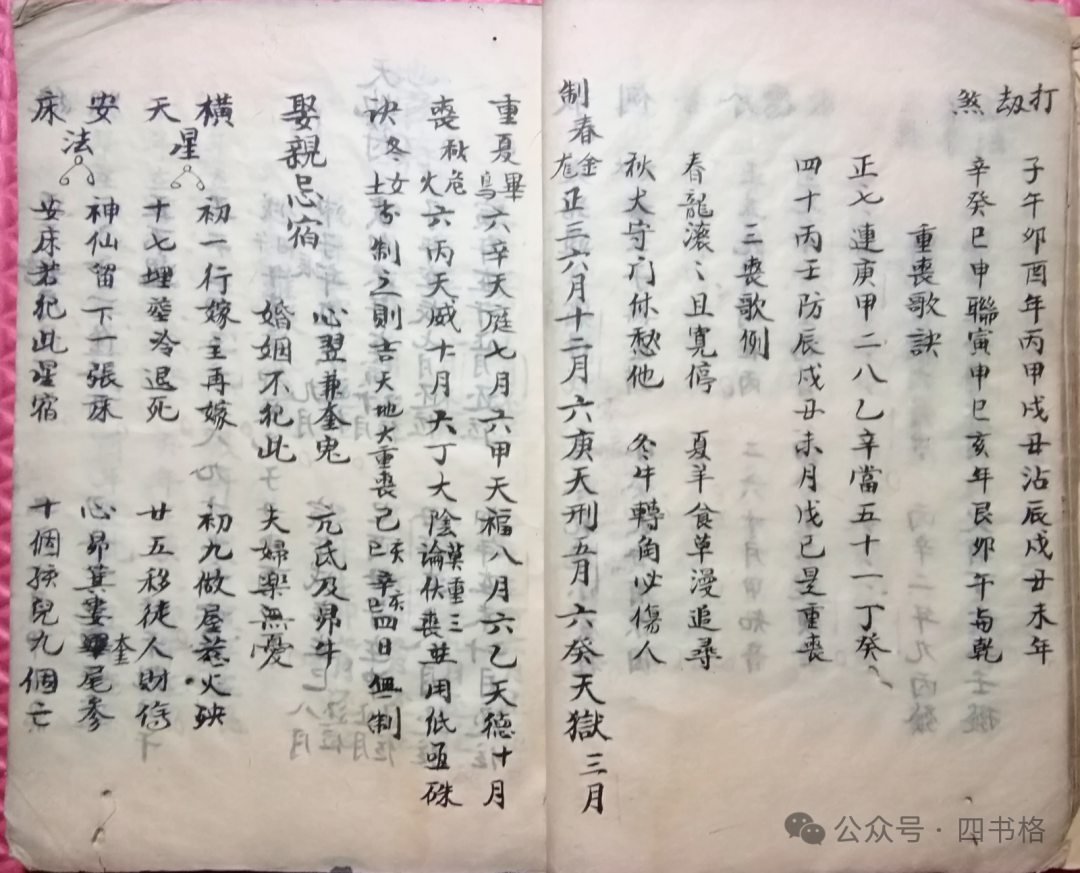 打劫煞
子午卯酉年丙甲戌丑沾辰戍丑未年
辛癸巳申聯寅申巳亥年艮卯午与乾
重喪歌訣
正七連庚甲二八乙辛當五十一丁癸
四十丙壬防辰戌丑未月戊己是重喪
三喪歌例
春龍滚〻且寛停 夏羊食草漫追尋
秋犬守门休愁他 冬牛轉角必傷人
制春金
正三六月十二月六庚天刑五月六癸天獄三月
重夏畢烏六辛天庭七月六甲天福八月六乙天德十月
喪秋危火六丙天威十月六丁大陰論伏喪並用纸 硃 莫重三
诀冬女土 制之則吉天地大重喪己亥己巳辛亥辛巳四日無制
娶親忌宿 心翌兼奎鬼 元氐及昴牛
婚姻不犯此 夫婦樂無憂
横天星 初一行嫁主再嫁 初九做屋惹火殃
十七埋塟冷退死 廿五移徒人財傷
安床法 神仙留下一張床 心昴箕婁奎尾参
安床若犯此星宿 十個孩兒九個亡
公众号·四书格